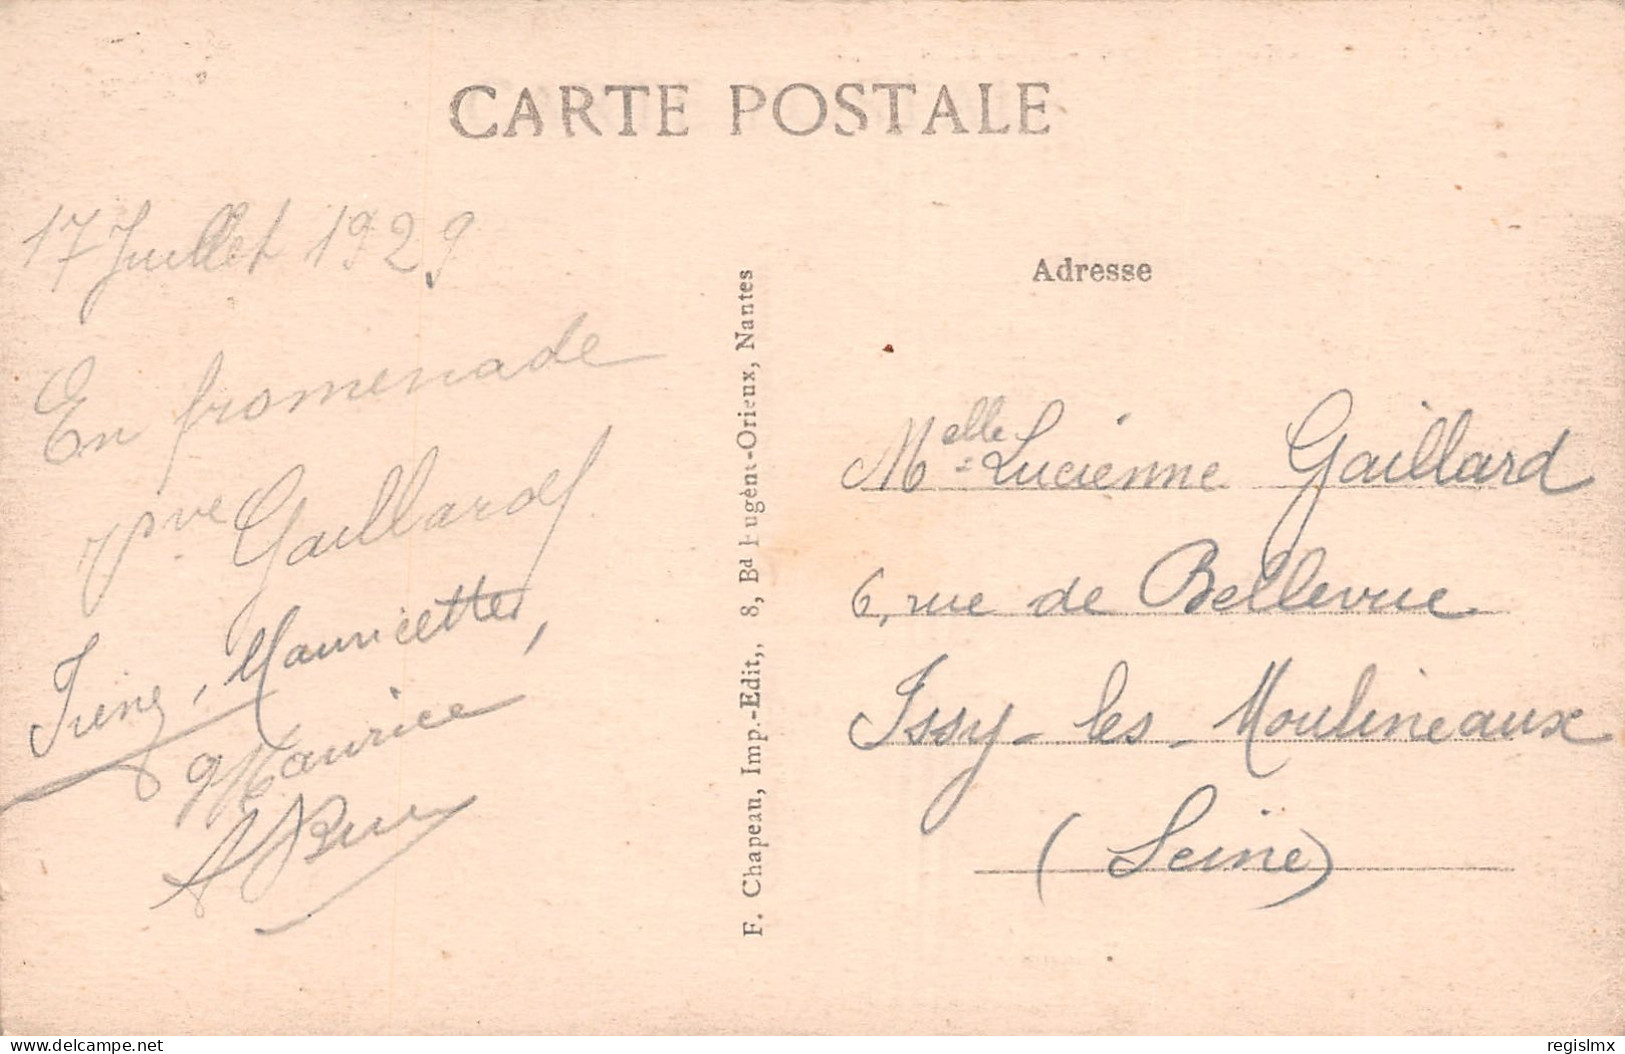 CARTE POSTALE
17 Juillet 1929
En promenade
Gaillard
Irène, Mauricette,
Maurice
F. Chapeau, Imp.-Edit., 8, Bd Eugène-Orieux, Nantes
Adresse
Melle Lucienne Gaillard
6, rue de Bellevue
Issy-les-Moulineaux
(Seine)
delcampe.net
regislmx